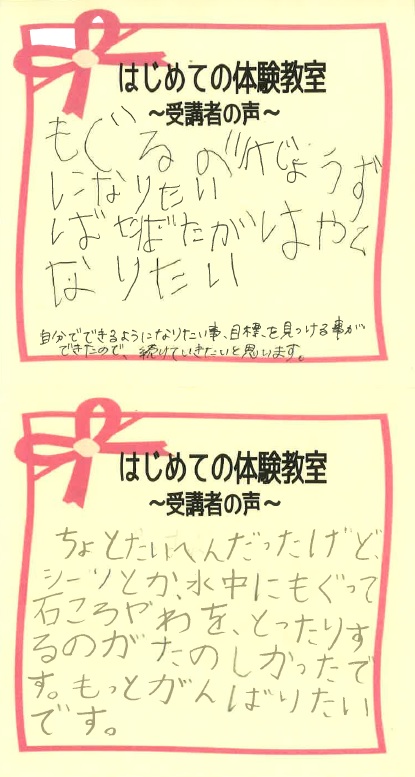 はじめての体験教室
~受講者の声~
もぐるのがじょうず
になりたい
ばたばたがはやく
なりたい
自分でできるようになりたい事、目標、を見つける事が
できたので、続けていきたいと思います。
はじめての体験教室
~受講者の声~
ちょとたいへんだったけど、
シーソとか、水中にもぐって
石ころやわを、とったりす
るのがたのしかったで
す。もっとがんばりたい
です。